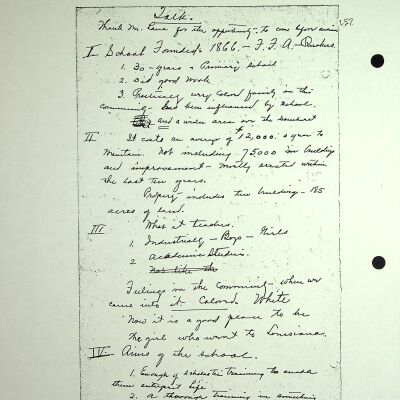 Talk.
257
Thank Mr. for the opportunity - to come before
I School Founded 1866. - F. F. A. - Quakers.
1. 30 - years a Primary School
2. Did good work
3. Practically every Colored family in this
community - has been influenced by School.
and a wider area in the Southeast
II It costs an average of $12,000. a year to
maintain. Not including 75000 in building
and improvement - mostly erected within
the last ten years.
Property includes ten building - 185
acres of land.
III What it teaches.
1. Industrially - Boys - Girls
2 Academic Studies.
Not like the
Feelings in the Community - when we
came into it - Colored White
Now it is a good place to be
The girl who went to Louisiana.
IV. Aims of the School.
1. Enough of scholastic training to enable
them interpret life
2. A thorough training in something